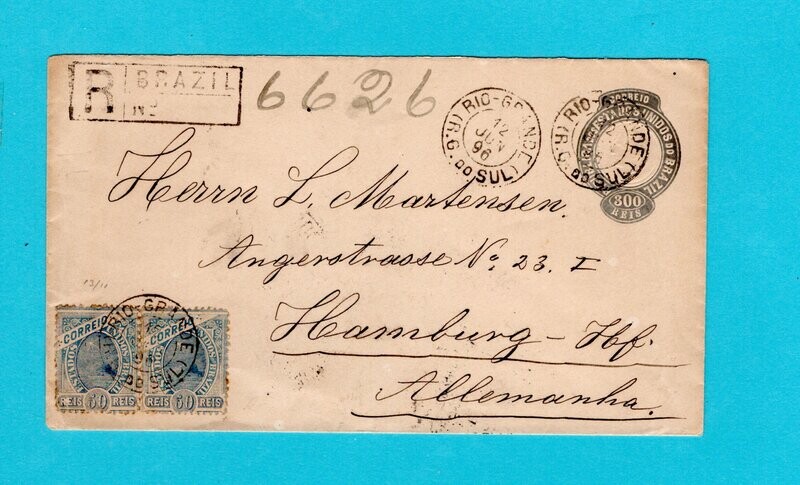 R
BRAZIL
Nº
6626
RIO-GRANDE (R.G. DO SUL)
12
96
RIO-GRANDE (R.G. DO SUL)
CORREIO
ESTADOS UNIDOS DO BRAZIL
300
REIS
Herrn L. Martensen.
Angerstrasse No. 23. I
Hamburg - Hf.
Allemanha.
RIO-GRANDE
SUL)
CORREIO
REIS 50 REIS
CORREIO
REIS 50 REIS